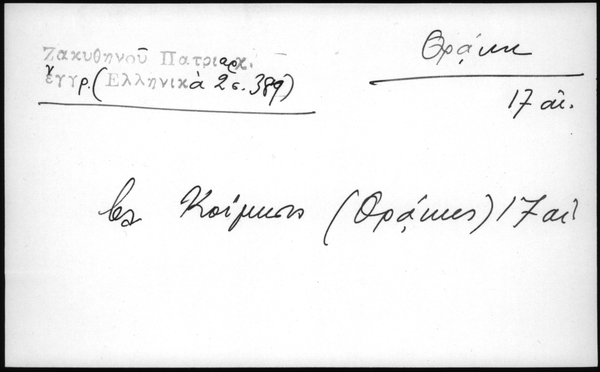 Ζακυθηνοῦ Πατριαρχ.
ἐγγρ. (Ἑλληνικὰ 2 σ. 389)
Θράκη
17 αἰ.
Κοίμησις (Θράκης) 17 αἰ